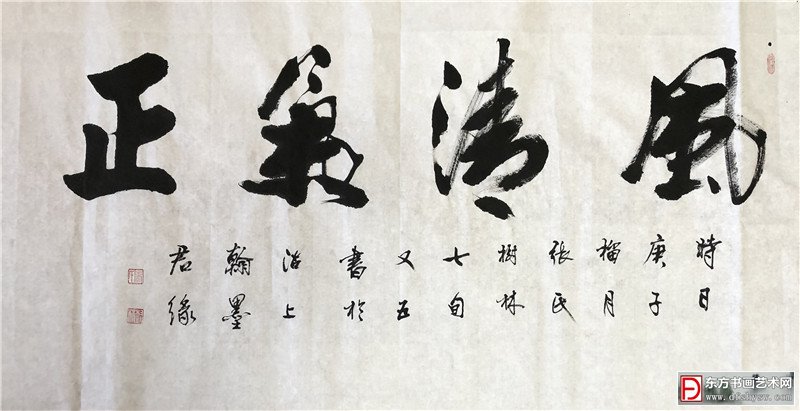 風清氣正
時日
庚子
榴月
張氏
樹林
七旬
又五
書於
沽上
翰墨
君緣
东方书画艺术网
www.dfshysw.com